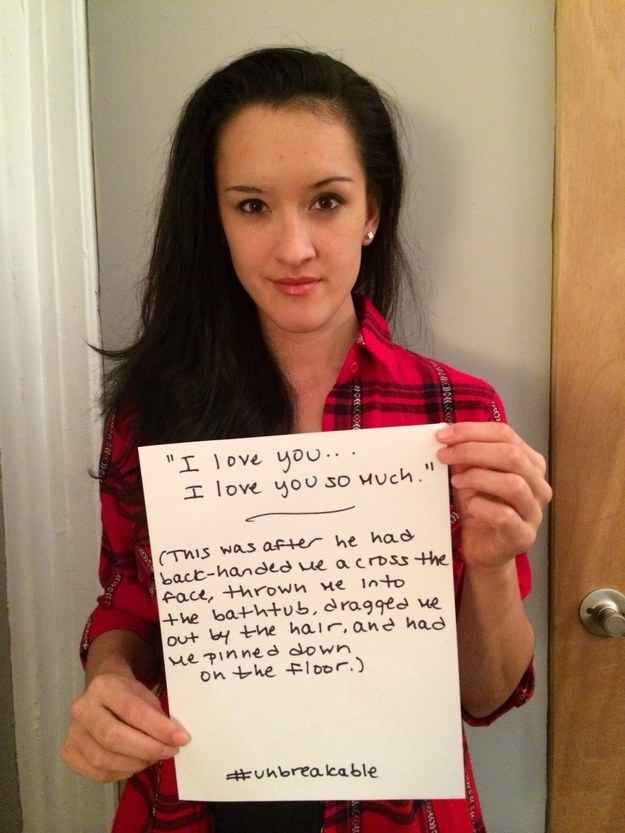 "I love you...
I love you so much."
(This was after he had
back-handed me across the
face, thrown me into
the bathtub, dragged me
out by the hair, and had
me pinned down
on the floor.)
#unbreakable